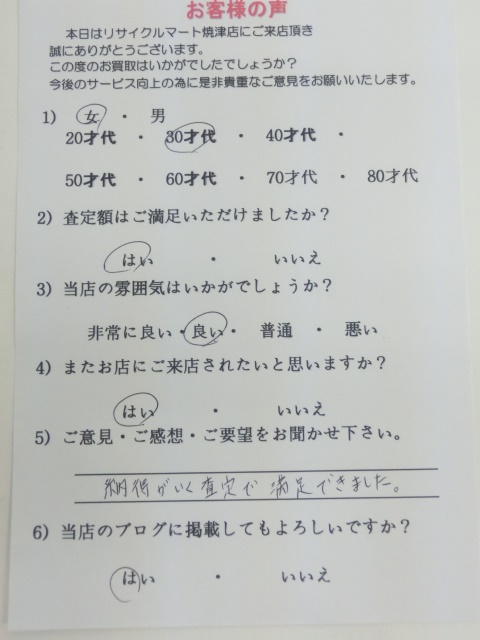 お客様の声
本日はリサイクルマート焼津店にご来店頂き
誠にありがとうございます。
この度のお買取はいかがでしたでしょうか？
今後のサービス向上の為に是非貴重なご意見をお願いいたします。
1) 女 ・ 男
20才代 ・ 30才代 ・ 40才代 ・
50才代 ・ 60才代 ・ 70才代 ・ 80才代
2) 査定額はご満足いただけましたか？
はい ・ いいえ
3) 当店の雰囲気はいかがでしょうか？
非常に良い・良い・ 普通 ・ 悪い
4) またお店にご来店されたいと思いますか？
はい ・ いいえ
5) ご意見・ご感想・ご要望をお聞かせ下さい。
納得がいく査定で満足できました。
6) 当店のブログに掲載してもよろしいですか？
はい ・ いいえ